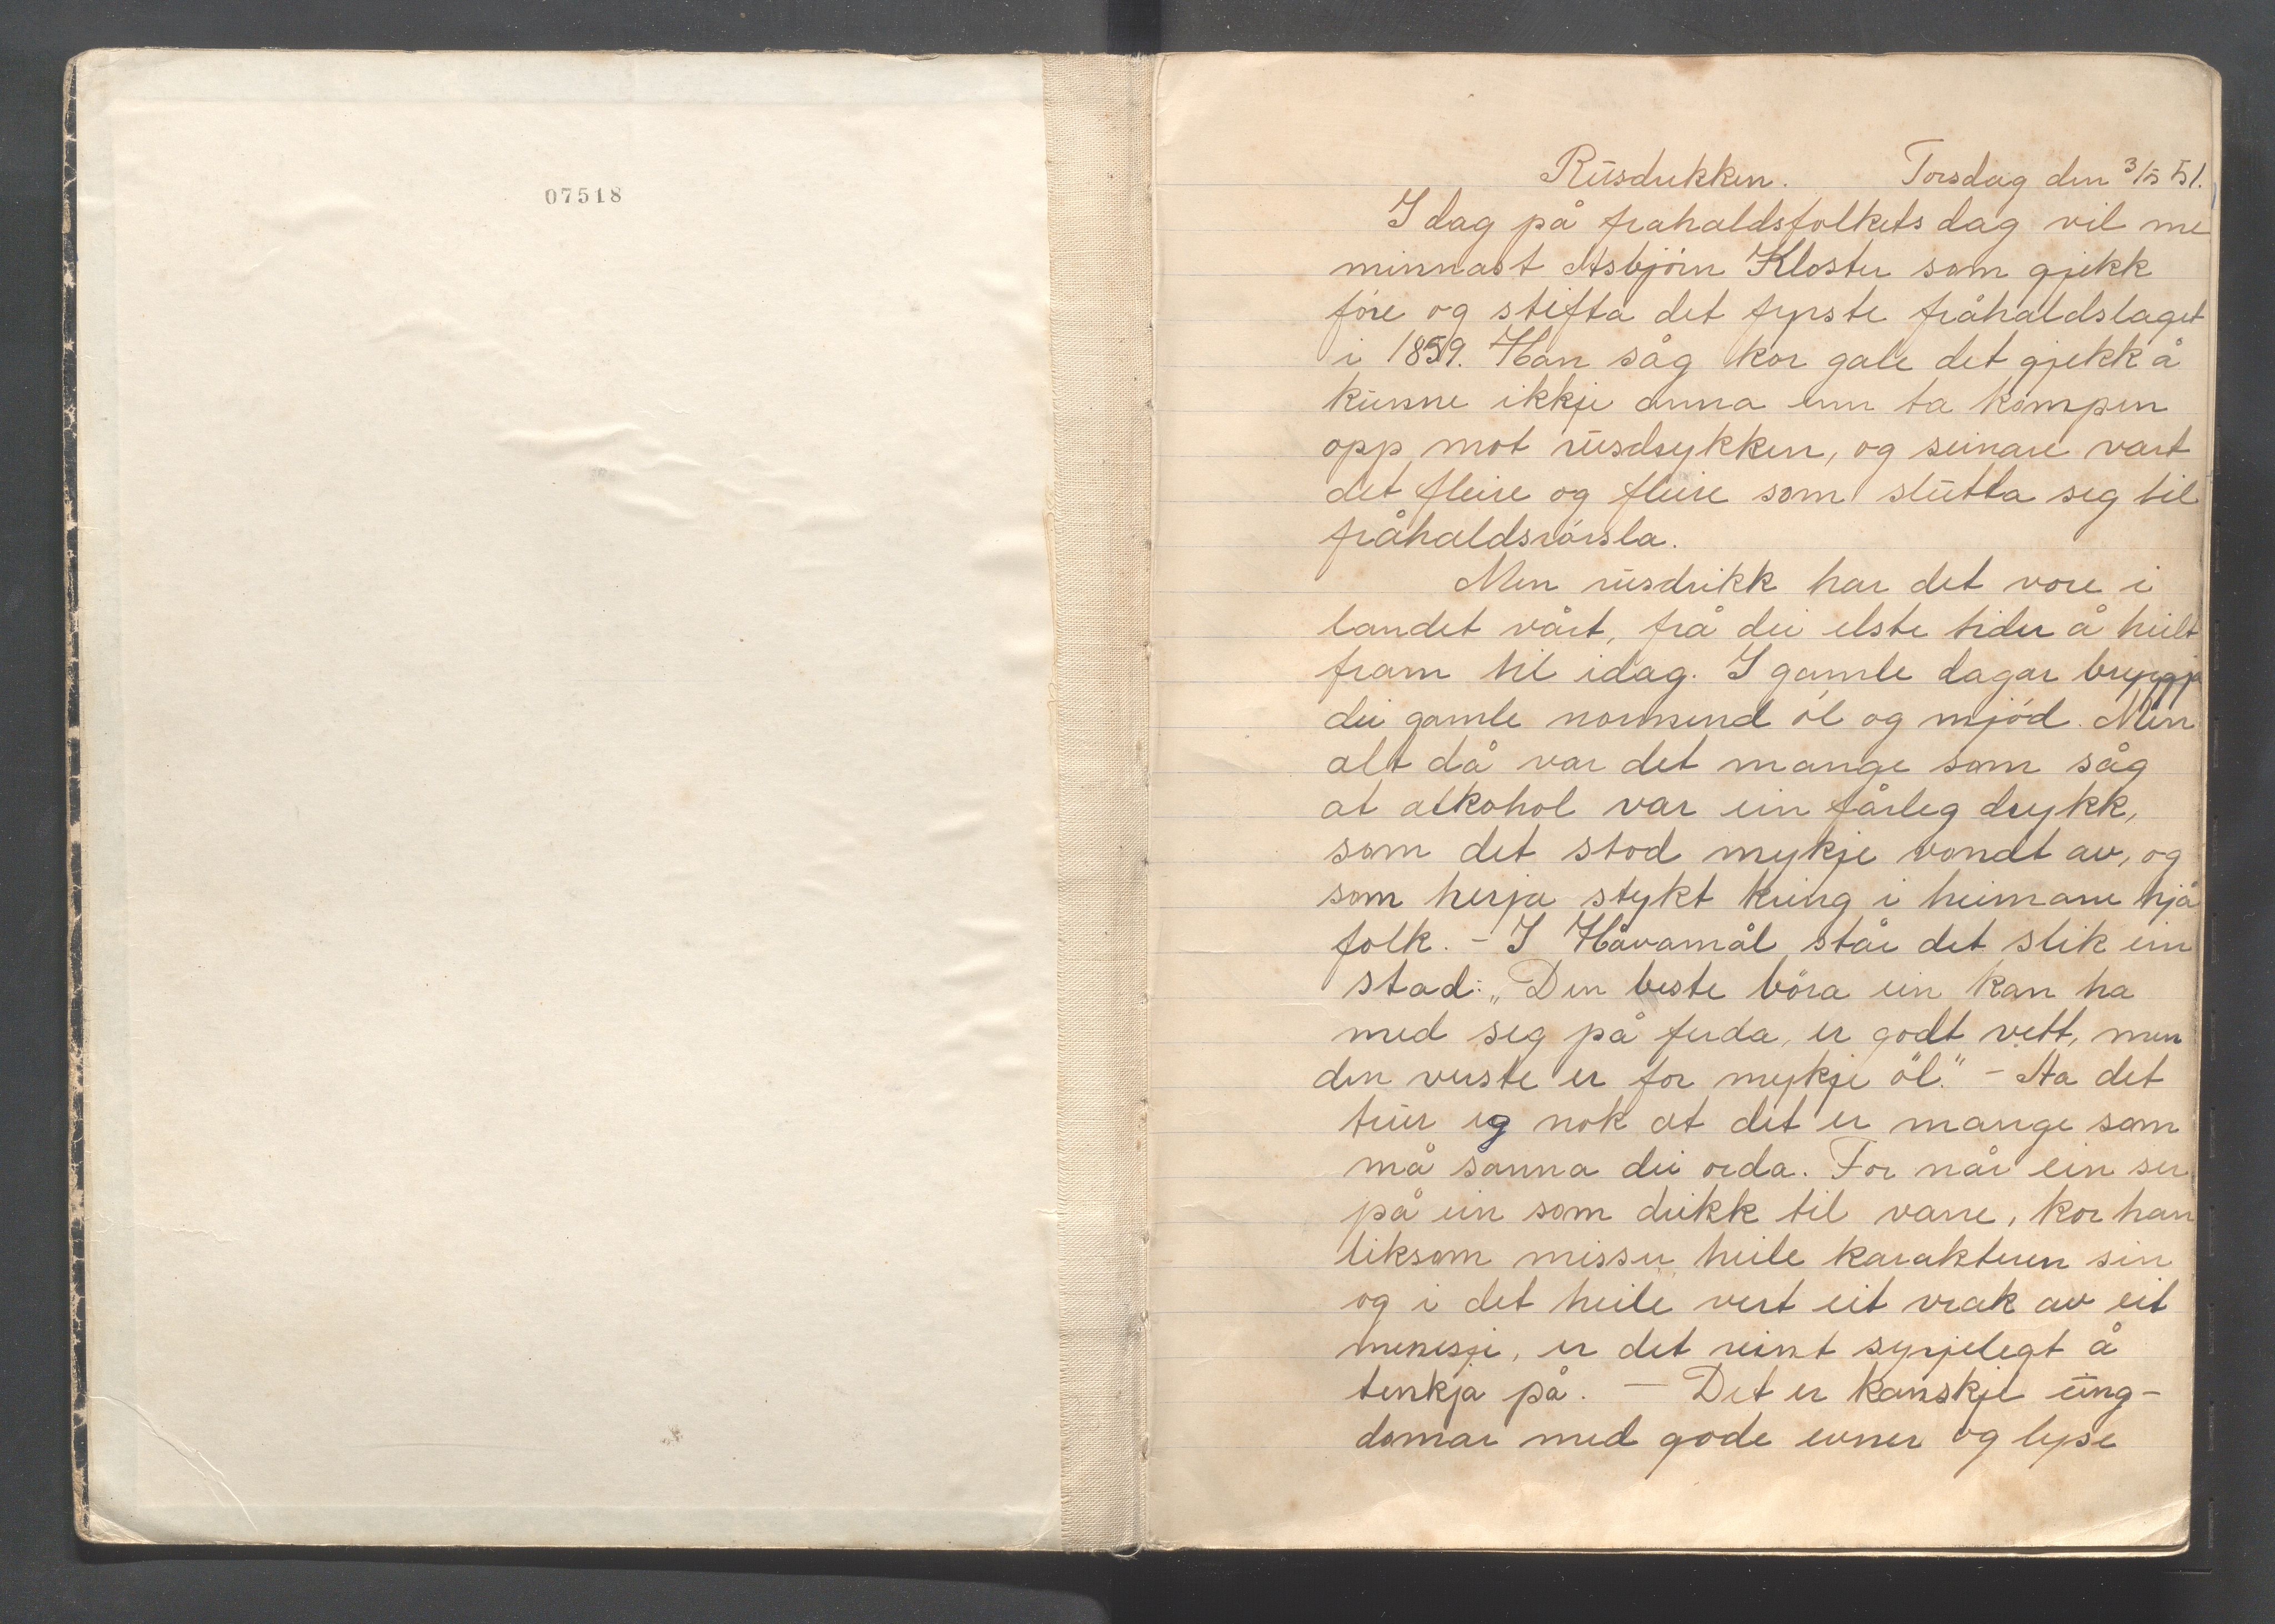 07518
Rusdrikken. Torsdag den 3/5 51.
I dag på fråhaldsfolkets dag vil me
minnast Asbjörn Kloster som gjekk
före og stifta det fyrste fråhaldslaget
i 1859. Han såg kor gale det gjekk å
kunne ikkje anna enn ta kampen
opp mot rusdrykken, og seinare vart
det fleire og fleire som slutta seg til
fråhaldsrörsla.
Men rusdrikk har det vore i
landet vårt, frå dei elste tider å heilt
fram til idag. I gamle dagar bryggja
dei gamle normend öl og mjöd. Men
alt då var det mange som såg
at alkohol var ein fårleg drykk,
som det stod mykje vondt av, og
som herja stykt kring i heimane hjå
folk. - I Håvamål står det slik ein
stad: „Den beste böra ein kan ha
med seg på ferda, er godt vett, men
den verste er for mykje öl." - Ha det
truer eg nok at det er mange som
må sanna dei orda. For når ein ser
på ein som drikk til vane, kor han
liksom misser heile karakteren sin
og i det heile vert eit vrak av eit
menesje, er det reint syrjelegt å
tenkja på. - Det er kanskje ung-
domar med gode evner og lyse